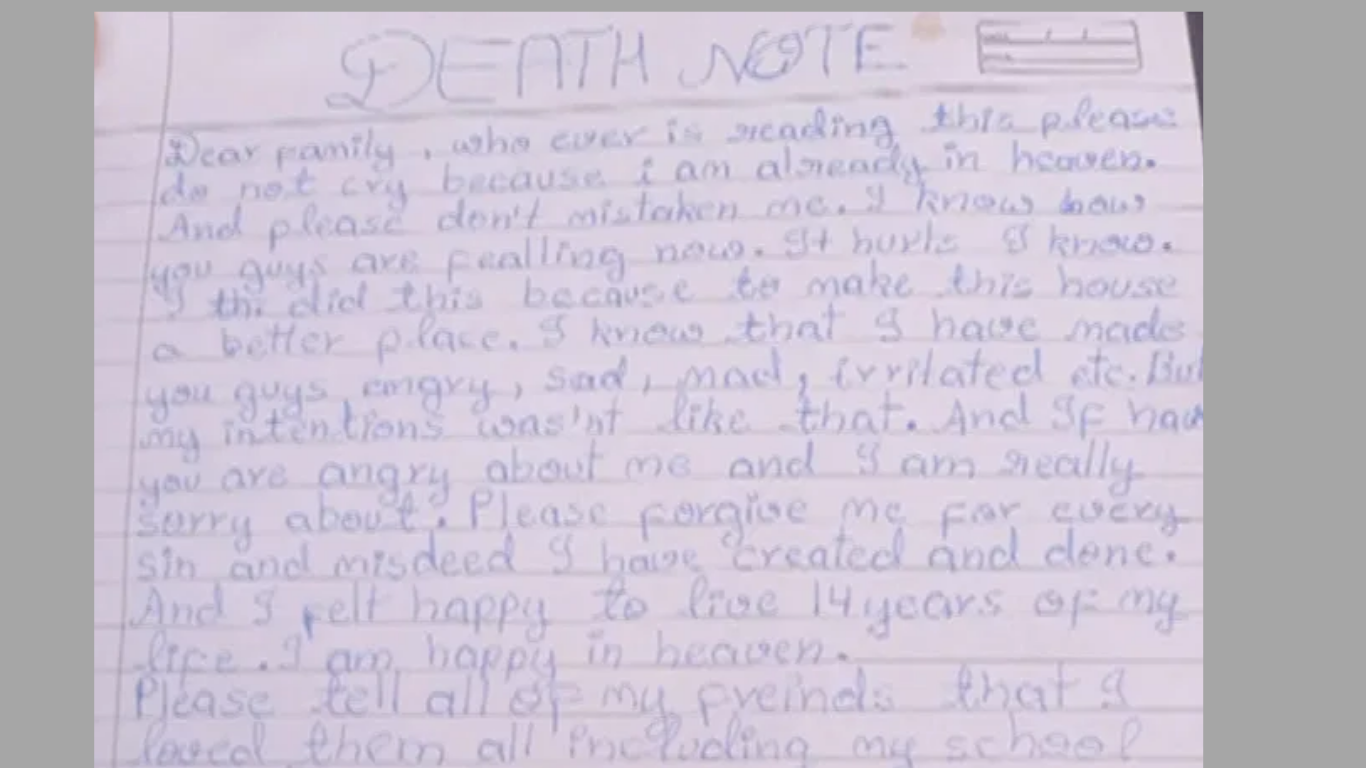 DEATH NOTE
Dear family, who ever is reading this please
do not cry because i am already in heaven.
And please don't mistaken me. I know how
you guys are fealling now. It hurts I know.
I thi did this because to make this house
a better place. I know that I have made
you guys angry, sad, mad, irritated etc. But
my intentions was'nt like that. And If
you are angry about me and I am really
sorry about. Please forgive me for every
sin and misdeed I have created and done.
And I felt happy to live 14 years of my
life. I am happy in heaven.
Please tell all of my freinds that I
loved them all including my school